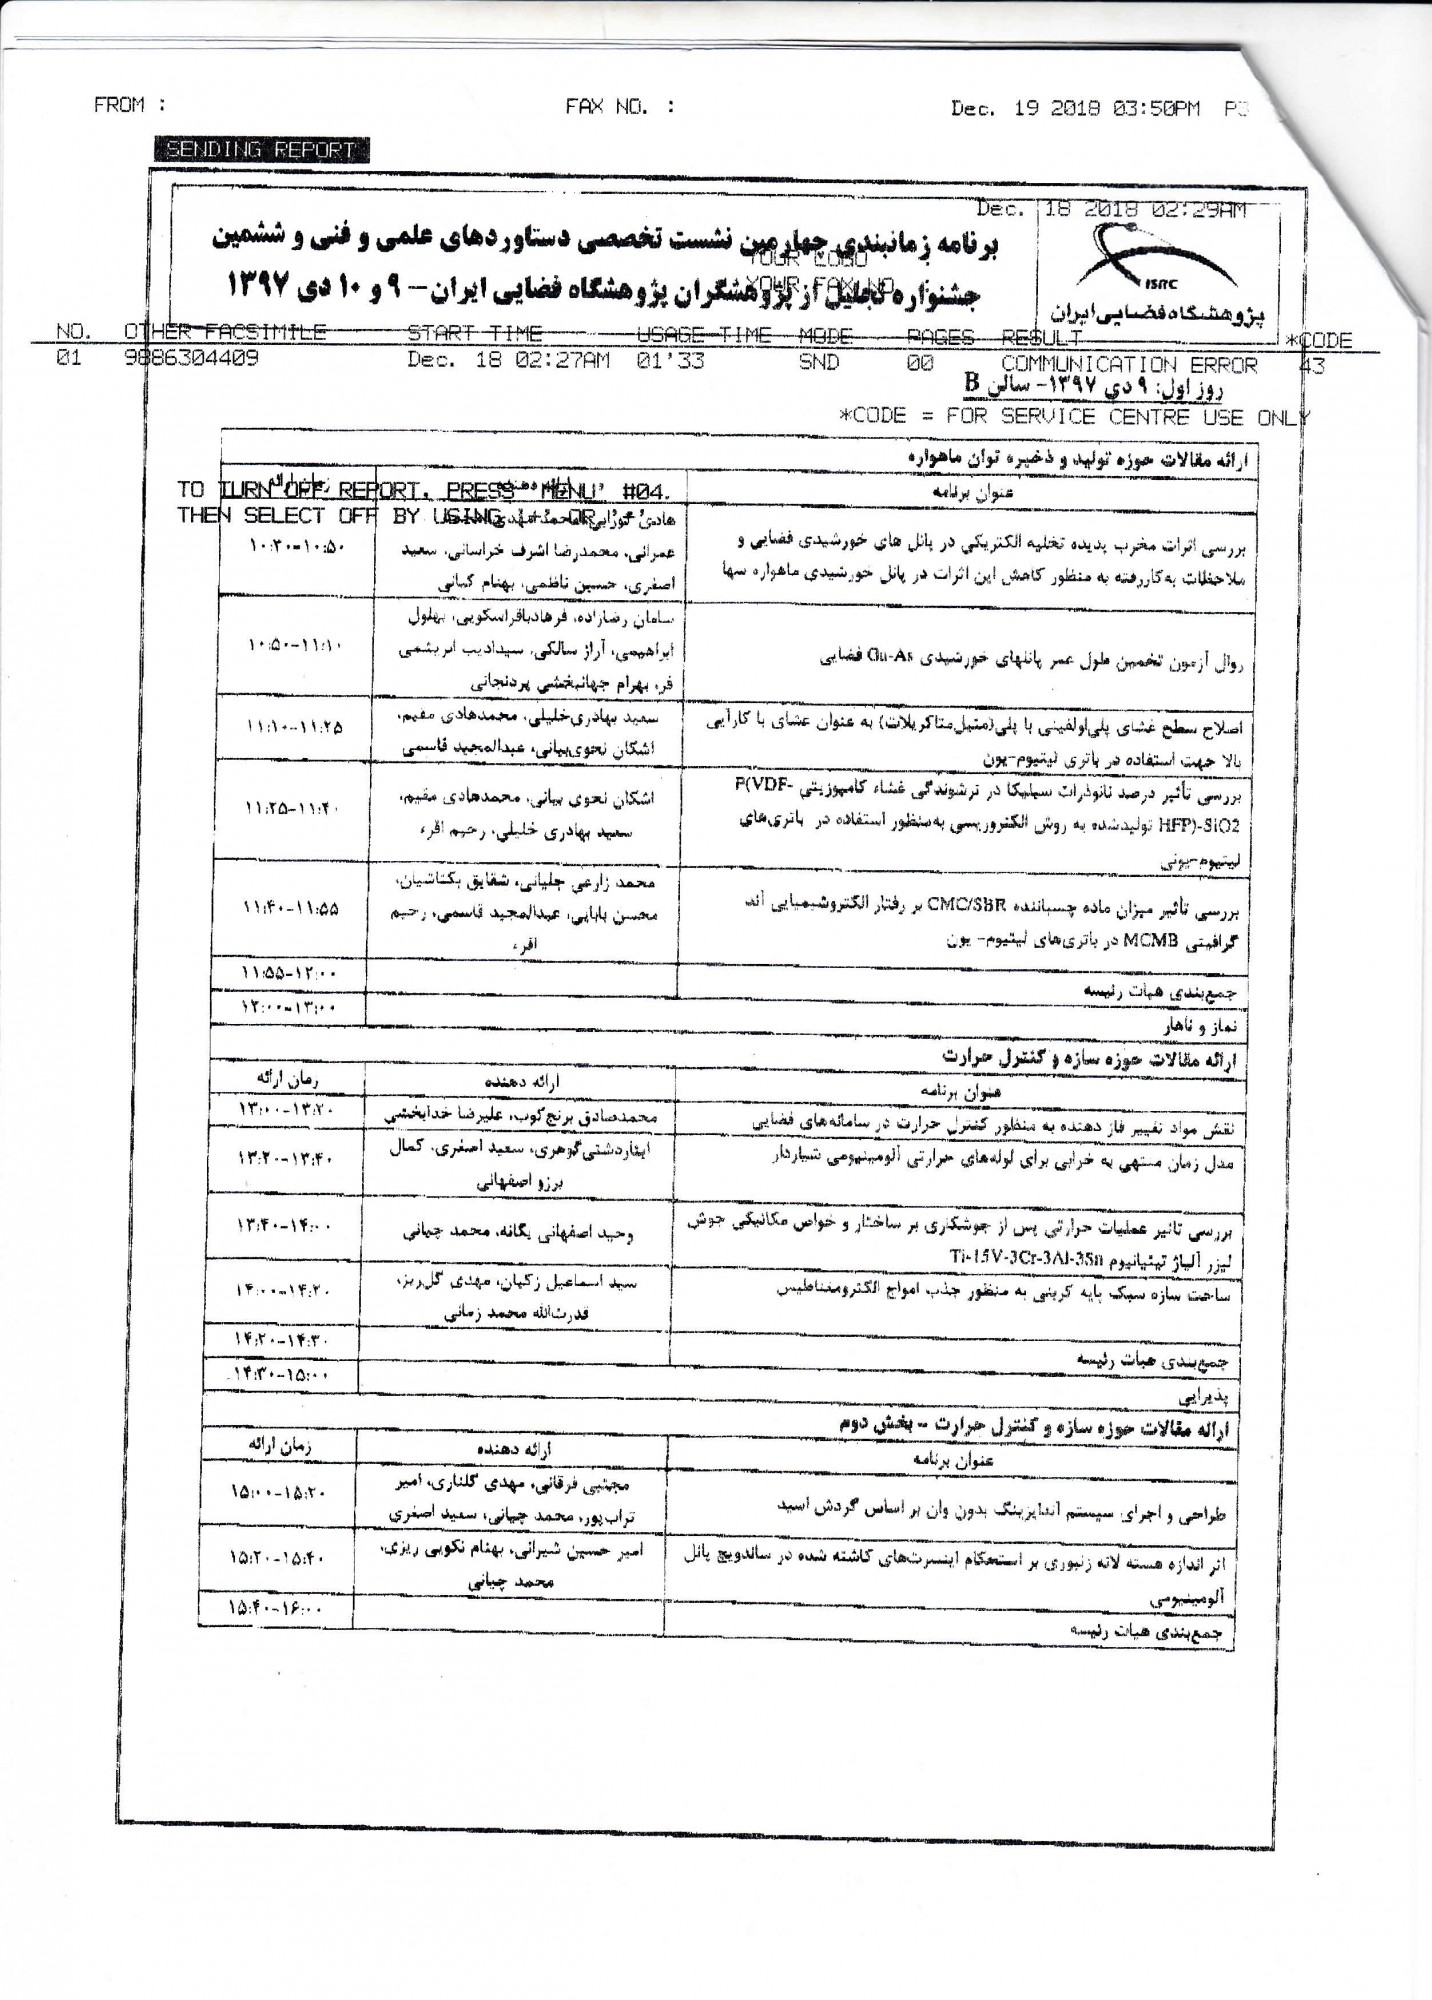 FROM :
FAX NO. :
Dec. 19 2018 03:50PM
SENDING REPORT
Dec. 18 2018 02:29AM
برنامه زمانبندی چهارمین نشست تخصصی دستاوردهای علمی و فنی و ششمین
YOUR LOGO
جشنواره تجلیل از پژوهشگران پژوهشگاه فضایی ایران- ۹ و ۱۰ دی ۱۳۹۷
YOUR FAX NO.
ISRC
پژوهشگاه فضایی ایران
NO. OTHER FACSIMILE START TIME USAGE TIME MODE PAGES RESULT *CODE
01 9886304409 Dec. 18 02:27AM 01'33 SND 00 COMMUNICATION ERROR 43
روز اول: ۹ دی ۱۳۹۷- سالن B
*CODE = FOR SERVICE CENTRE USE ONLY
ارائه مقالات حوزه تولید و ذخیره توان ماهواره
عنوان برنامه
TO TURN OFF REPORT, PRESS 'MENU' #04.
THEN SELECT OFF BY USING '+' OR '-'.
بررسی اثرات مخرب پدیده تخلیه الکتریکی در پانل های خورشیدی فضایی و
ملاحظات به‌کاررفته به منظور کاهش این اثرات در پانل خورشیدی ماهواره سها
عمرانی، محمدرضا اشرف خراسانی، سعید
اصغری، حسین ناظمی، بهنام کیانی
۱۰:۳۰-۱۰:۵۰
روال آزمون تخمین طول عمر پانلهای خورشیدی Ga-As فضایی
سامان رضازاده، فرهادباقراسکویی، بهلول
ابراهیمی، آراز سالکی، سیدادیب ابریشمی
فر، بهرام جهانبخشی پردنجانی
۱۰:۵۰-۱۱:۱۰
اصلاح سطح غشای پلی‌اولفینی با پلی(متیل‌متاکریلات) به عنوان غشای با کارآیی
بالا جهت استفاده در باتری لیتیوم-یون
سعید بهادری‌خلیلی، محمدهادی مقیم،
اشکان نحوی‌بیانی، عبدالمجید قاسمی
۱۱:۱۰-۱۱:۲۵
بررسی تأثیر درصد نانوذرات سیلیکا در ترشوندگی غشاء کامپوزیتی P(VDF-
HFP)-SiO2 تولیدشده به روش الکتروریسی به‌منظور استفاده در باتری‌های
لیتیوم-یونی
اشکان نحوی بیانی، محمدهادی مقیم،
سعید بهادری خلیلی، رحیم اقرء
۱۱:۲۵-۱۱:۴۰
بررسی تأثیر میزان ماده چسباننده CMC/SBR بر رفتار الکتروشیمیایی آند
گرافیتی MCMB در باتری‌های لیتیوم- یون
محمد زارعی جلیانی، شقایق بکتاشیان،
محسن بابایی، عبدالمجید قاسمی، رحیم
اقرء
۱۱:۴۰-۱۱:۵۵
جمع‌بندی هیأت رئیسه
۱۱:۵۵-۱۲:۰۰
نماز و ناهار
۱۲:۰۰-۱۳:۰۰
ارائه مقالات حوزه سازه و کنترل حرارت
عنوان برنامه
ارائه دهنده
زمان ارائه
نقش مواد تغییر فاز دهنده به منظور کنترل حرارت در سامانه‌های فضایی
محمدصادق برنج‌کوب، علیرضا خدابخشی
۱۳:۰۰-۱۳:۲۰
مدل زمان منتهی به خرابی برای لوله‌های حرارتی آلومینیومی شیاردار
ایثاردشتی‌گوهری، سعید اصغری، کمال
برزو اصفهانی
۱۳:۲۰-۱۳:۴۰
بررسی تاثیر عملیات حرارتی پس از جوشکاری بر ساختار و خواص مکانیکی جوش
لیزر آلیاژ تیتانیوم Ti-15V-3Cr-3Al-3Sn
وحید اصفهانی یگانه، محمد چیانی
۱۳:۴۰-۱۴:۰۰
ساخت سازه سبک پایه کربنی به منظور جذب امواج الکترومغناطیس
سید اسماعیل زکیان، مهدی گل‌ریز،
قدرت‌الله محمد زمانی
۱۴:۰۰-۱۴:۲۰
جمع‌بندی هیأت رئیسه
۱۴:۲۰-۱۴:۳۰
پذیرایی
۱۴:۳۰-۱۵:۰۰
ارائه مقالات حوزه سازه و کنترل حرارت – بخش دوم
عنوان برنامه
ارائه دهنده
زمان ارائه
طراحی و اجرای سیستم آندایزینگ بدون وان بر اساس گردش اسید
مجتبی فرقانی، مهدی گلناری، امیر
تراب‌پور، محمد چیانی، سعید اصغری
۱۵:۰۰-۱۵:۲۰
اثر اندازه هسته لانه زنبوری بر استحکام اینسرت‌های کاشته شده در ساندویچ پانل
آلومینیومی
امیر حسین شیرانی، بهنام نکویی ریزی،
محمد چیانی
۱۵:۲۰-۱۵:۴۰
جمع‌بندی هیأت رئیسه
۱۵:۴۰-۱۶:۰۰